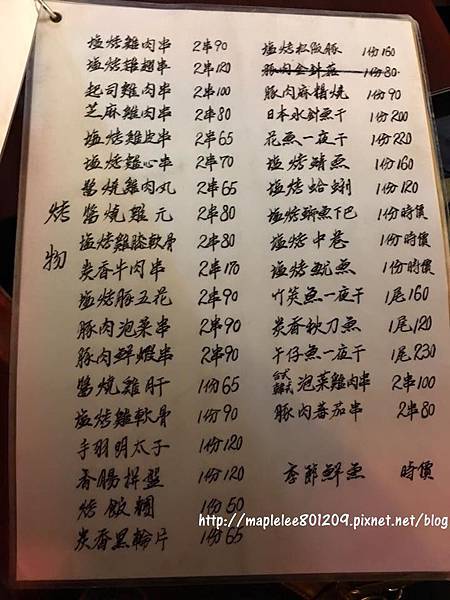 烤物
塩烤雞肉串 2串90
塩烤雞翅串 2串120
起司雞肉串 2串100
芝麻雞肉串 2串80
塩烤雞皮串 2串65
塩烤雞心串 2串70
醬燒雞肉丸 2串65
醬燒雞元 2串80
塩烤雞膝軟骨 2串80
炭香牛肉串 2串170
塩烤豚五花 2串90
豚肉泡菜串 2串90
豚肉鮮蝦串 2串90
醬燒雞肝 1份65
塩烤雞軟骨 1份90
手羽明太子 1份120
香腸拼盤 1份120
烤飯糰 1份50
炭香黑輪片 1份65
塩烤松阪豚 1份160
豚肉金針菇 1份80
豚肉麻糬燒 1份90
日本水針魚干 1份200
花魚一夜干 1份220
塩烤鯖魚 1份160
塩烤蛤蜊 1份120
塩烤鰤魚下巴 1份時價
塩烤中卷 1份時價
塩烤魷魚 1份時價
竹筴魚一夜干 1尾160
炭香秋刀魚 1尾120
午仔魚一夜干 1尾230
台式 韓式 泡菜雞肉串 2串100
豚肉蕃茄串 2串80
季節鮮魚 時價
http://maplelee801209.pixnet.net/blog